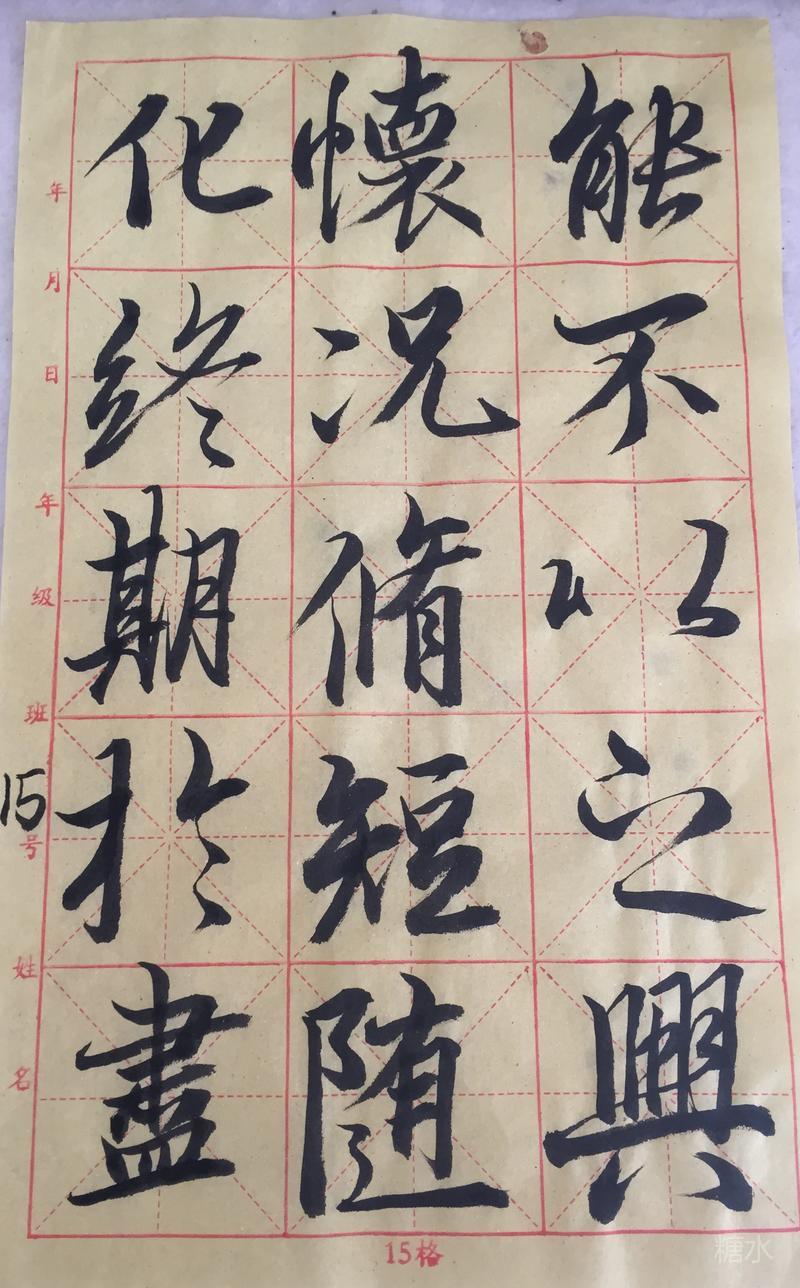 能不以之興
懷況脩短随
化終期於盡
年月日
年級班15号
姓名
15格
糖水